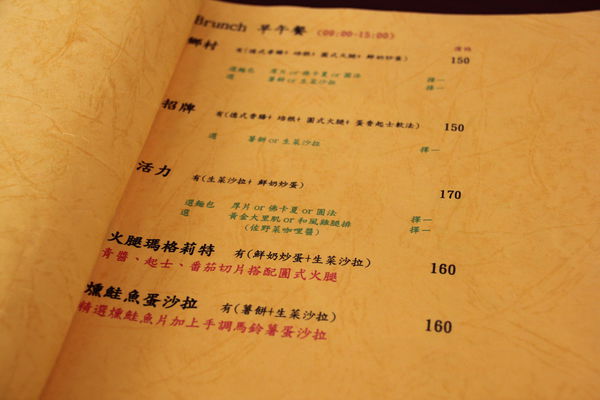 Brunch 早午餐 (09:00-15:00)
價格
鄉村 有(德式香腸+培根+圓式火腿+鮮奶炒蛋) 150
選麵包 厚片 or 佛卡夏 or 圓法 擇一
選 薯餅 or 生菜沙拉 擇一
招牌 有(德式香腸+培根+圓式火腿+蛋香起士軟法) 150
選 薯餅 or 生菜沙拉 擇一
活力 有(生菜沙拉+鮮奶炒蛋) 170
選麵包 厚片 or 佛卡夏 or 圓法 擇一
選 黃金大里肌 or 和風雞腿排 擇一
(佐野菜咖哩醬)
火腿瑪格莉特 有(鮮奶炒蛋+生菜沙拉) 160
青醬、起士、番茄切片搭配圓式火腿
燻鮭魚蛋沙拉 有(薯餅+生菜沙拉) 160
精選燻鮭魚片加上手調馬鈴薯蛋沙拉